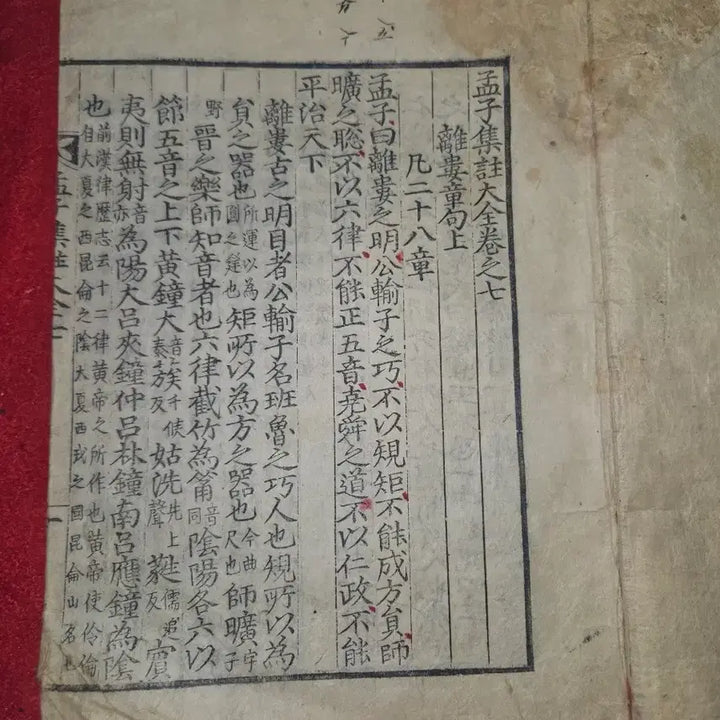 孟子集註大全卷之七
離婁章句上
凡二十八章
孟子曰離婁之明公輸子之巧不以規矩不能成方貟師
曠之聡不以六律不能正五音堯舜之道不以仁政不能
平治天下
離婁古之明目者公輸子名班魯之巧人也規所以為
貟之器也所運以為圓之筳也矩所以為方之器也今曲尺也師曠字子
野晉之樂師知音者也六律截竹為筩音同陰陽各六以
節五音之上下黃鐘大音泰蔟千候反姑洗先上聲蕤儒追反賓
夷則無射音亦為陽大呂夾鐘仲呂林鐘南呂應鐘為陰
也前漢律歷志云十二律黃帝之所作也黃帝使伶倫自大夏之西昆侖之陰大夏西戎之國昆侖山名也
孟子集註大全